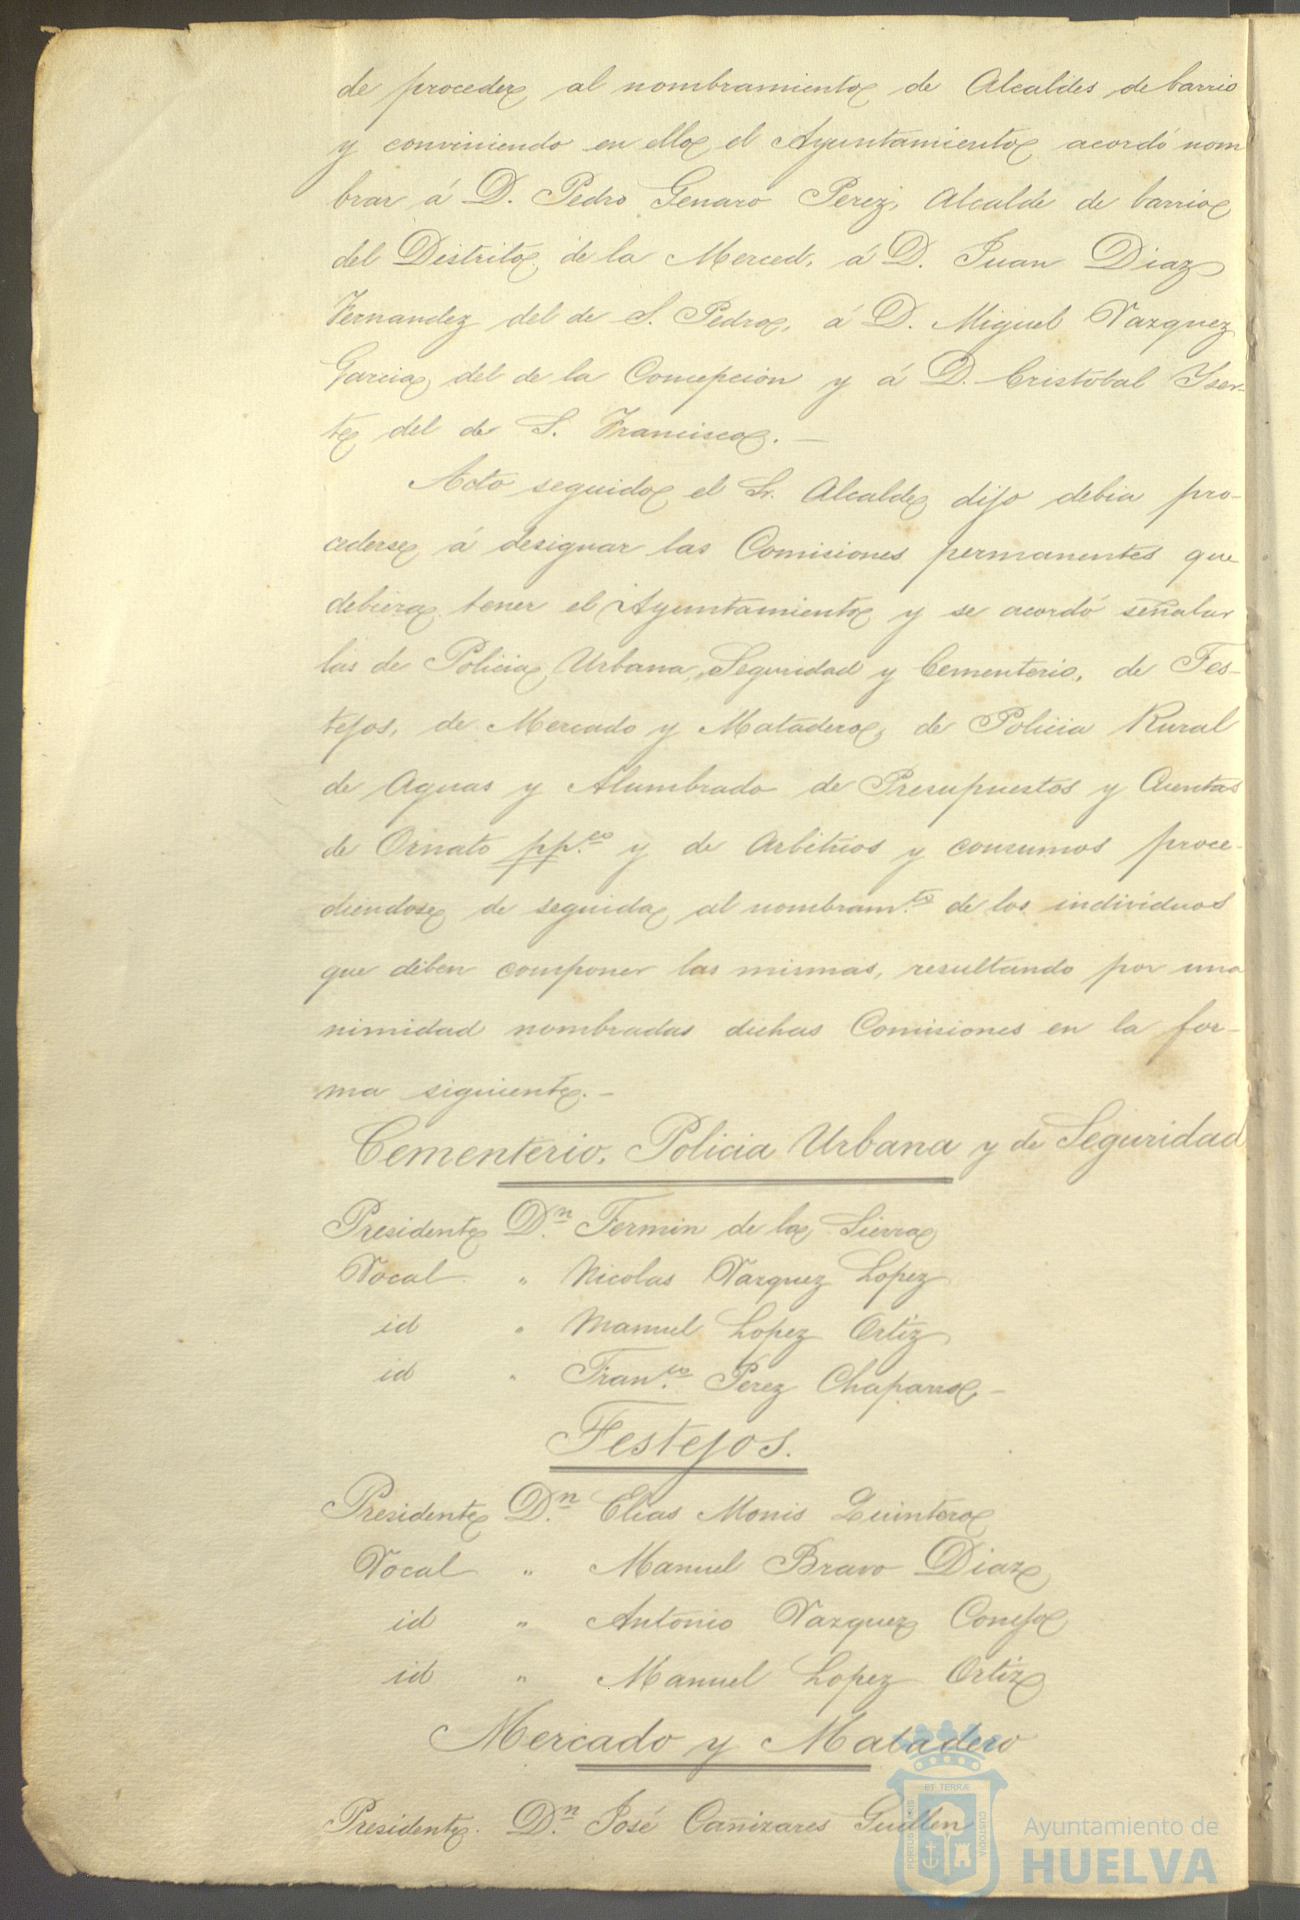 de proceder al nombramiento de Alcaldes de barrio
y conviniendo en ello el Ayuntamiento acordó nom
brar á D. Pedro Genaro Perez, Alcalde de barrio
del Distrito de la Merced, á D. Juan Diaz
Fernandez del de S. Pedro, á D. Miguel Vazquez
Garcia del de la Concepcion y á D. Cristobal Yser-
te del de S. Francisco. —
Acto seguido el Sr. Alcalde dijo debia pro-
cederse á designar las Comisiones permanentes que
debiera tener el Ayuntamiento y se acordó señalar
las de Policia Urbana, Seguridad y Cementerio, de Fes-
tejos, de Mercado y Matadero, de Policia Rural
de Aguas y Alumbrado de Presupuestos y Cuentas
de Ornato pp.co y de Arbitrios y consumos proce-
diendose de seguida al nombram.to de los individuos
que deben componer las mismas, resultando por una
nimidad nombradas dichas Comisiones en la for-
ma siguiente. —
Cementerio, Policia Urbana y de Seguridad
Presidente D.n Fermin de la Sierra
Vocal " Nicolas Vazquez Lopez
id " Manuel Lopez Ortiz
id " Fran.co Perez Chaparro —
Festejos.
Presidente D.n Elias Monis Quintero
Vocal " Manuel Bravo Diaz
id " Antonio Vazquez Conejo
id " Manuel Lopez Ortiz
Mercado y Matadero
Presidente. D.n José Cañizares Guillen
PORTUS MARIS ET TERRÆ CUSTODIA
Ayuntamiento de
HUELVA